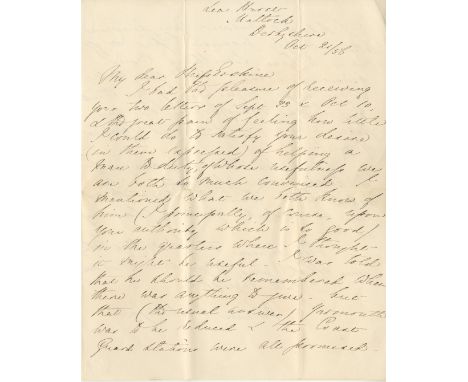 Lea Hurst
Matlock
Derbyshire
Oct 21/58
My dear Miss Erskine
I had the pleasure of receiving
your two letters of Sept 22 & Oct 10,
& the great pain of feeling how little
I could do to satisfy your desire
(in them expressed) of helping a
man to duty, of whose usefulness we
are both so much convinced. I
mentioned what we both know of
him (I principally, of course, upon
your authority which is so good)
in the quarters where I thought
it might be useful. I was told
that he should be remembered when
there was anything to give, but
that (the usual answer) Yarmouth
was to be reduced & the Coast
Guard stations were all promised.